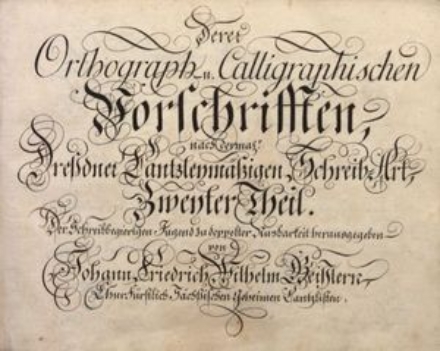 Derer
Orthograph- u. Calligraphischen
Vorschrifften,
nach dermal:
Dreßdner Cantzleymäßigen Schreib-Art,
Zweyter Theil.
Der Schreibbegierigen Jugend zu doppelter Nutzbarkeit herausgegeben
von
Johann Friedrich Wilhelm Weißlern,
Chur Fürstlich Sächsischen Geheimen Cantzlisten.